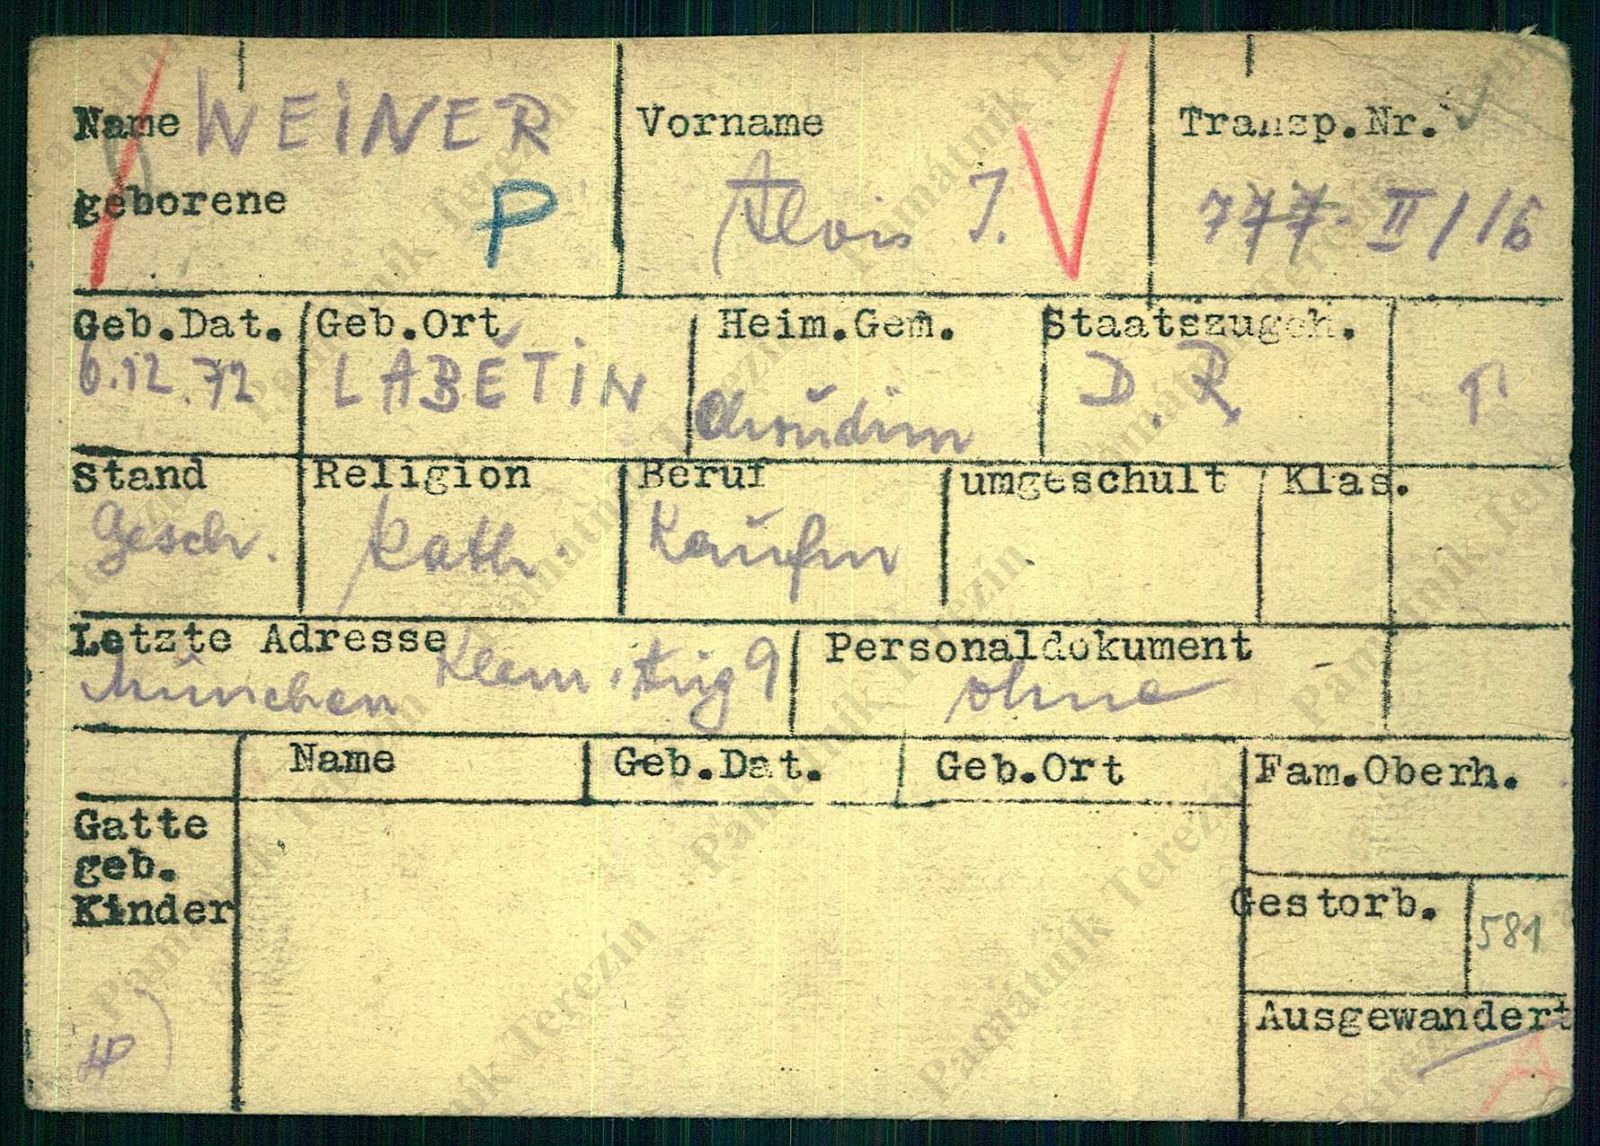 Name WEINER Vorname Transp.Nr.
geborene P Alois J. 777-II/16
Geb.Dat. Geb.Ort Heim.Gem. Staatszugeh.
6.12.72 LABĚTÍN Chrudim D.R
Stand Religion Beruf umgeschult Klas.
Gesch. kath. Kaufm
Letzte Adresse Klem. Aug 9 Personaldokument
München ohne
Name Geb.Dat. Geb.Ort Fam.Oberh.
Gatte
geb.
Kinder
Gestorb. 581
Ausgewandert
Památník Terezín